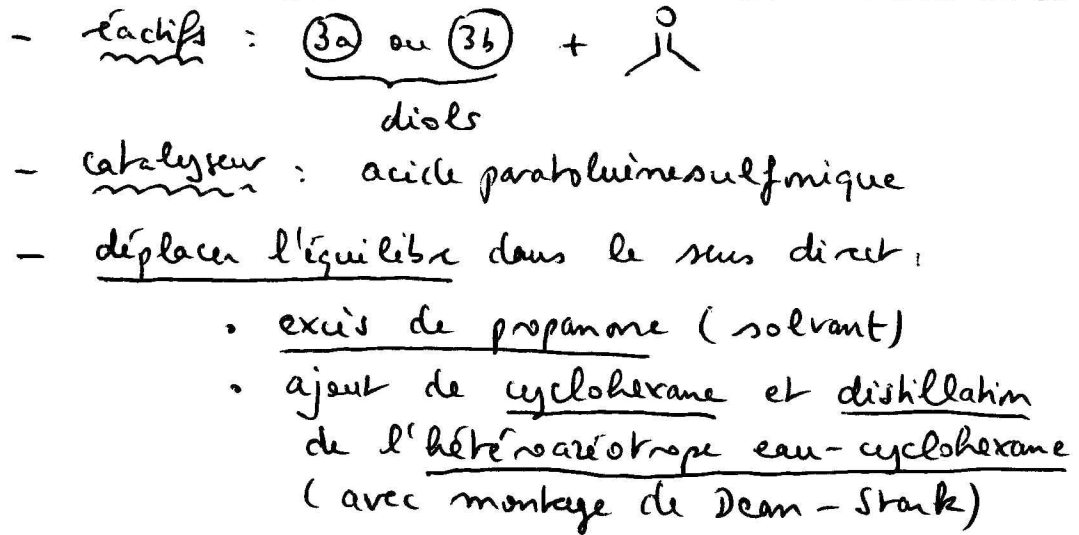 - réactifs : 3a ou 3b + O
diols
- catalyseur : acide paratoluènesulfonique
- déplacer l'équilibre dans le sens direct :
• excès de propanone (solvant)
• ajout de cyclohexane et distillation
de l'hétéroazéotrope eau-cyclohexane
(avec montage de Dean-Stark)